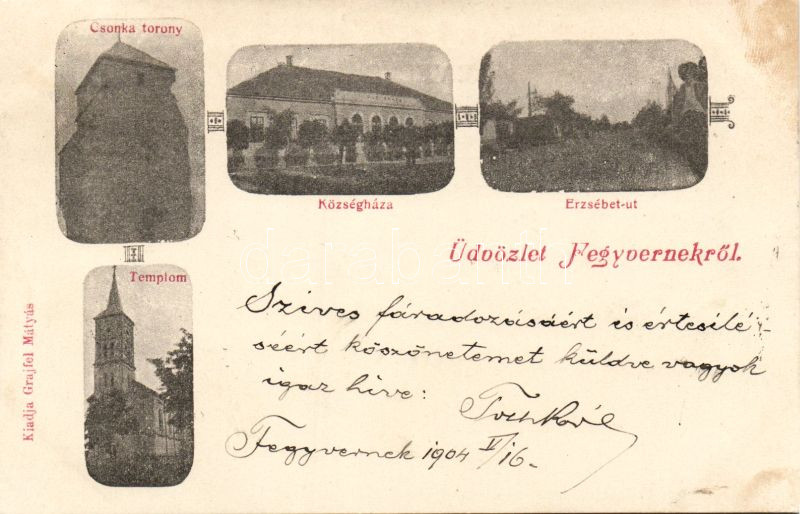 Csonka torony
Községháza
Erzsébet-ut
Üdvözlet Fegyvernekről.
Templom
Kiadja Grajfel Mátyás
Szives fáradozásáért is értesilé-
séért köszönetemet küldve vagyok
igaz hive:
Fegyvernek 1904 V/16-